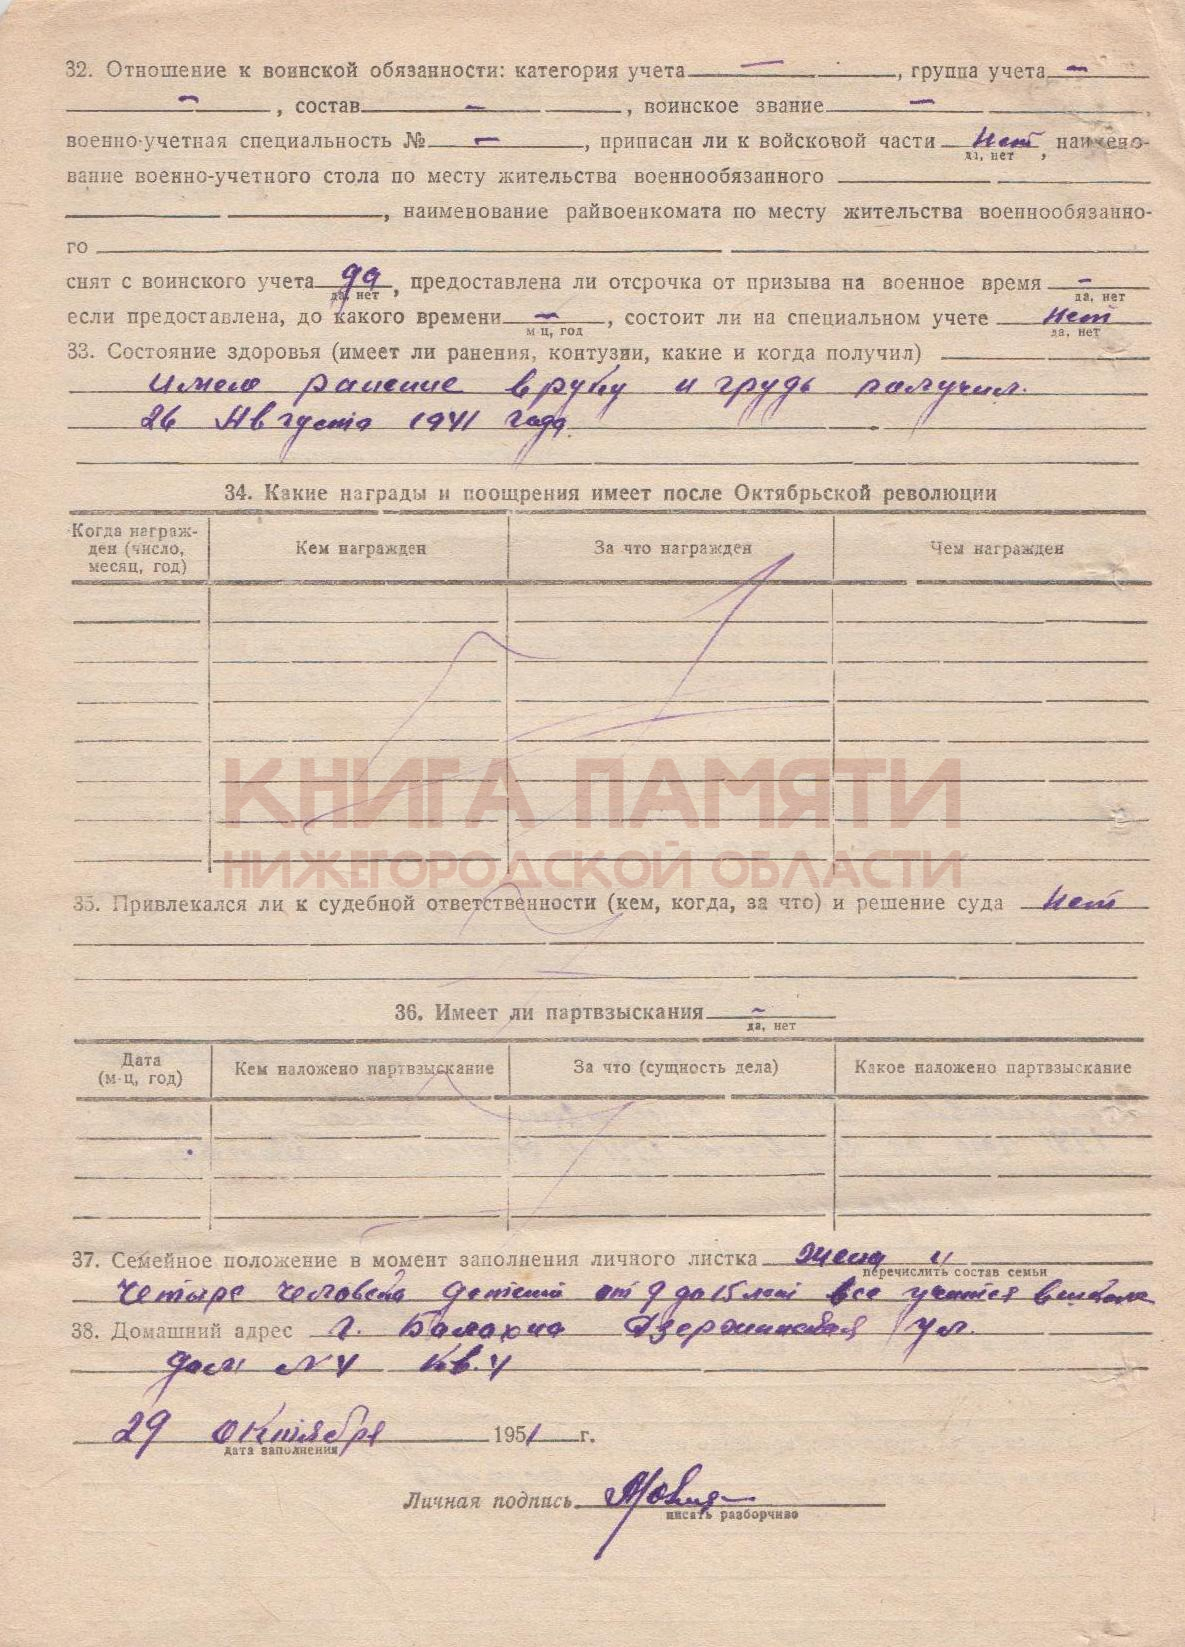 32. Отношение к воинской обязанности: категория учета — , группа учета —
— , состав — , воинское звание — ,
военно-учетная специальность № — , приписан ли к войсковой части Нет , наимено-
да, нет
вание военно-учетного стола по месту жительства военнообязанного
, наименование райвоенкомата по месту жительства военнообязанно-
го
снят с воинского учета да , предоставлена ли отсрочка от призыва на военное время —
да, нет
да, нет
если предоставлена, до какого времени — , состоит ли на специальном учете Нет
м-ц, год
да, нет
33. Состояние здоровья (имеет ли ранения, контузии, какие и когда получил)
имею ранение в руку и грудь получил.
26 Августа 1941 года.
34. Какие награды и поощрения имеет после Октябрьской революции
Когда награж-
ден (число,
месяц, год)
Кем награжден
За что награжден
Чем награжден
КНИГА ПАМЯТИ
НИЖЕГОРОДСКОЙ ОБЛАСТИ
35. Привлекался ли к судебной ответственности (кем, когда, за что) и решение суда Нет
36. Имеет ли партвзыскания —
да, нет
Дата
(м-ц, год)
Кем наложено партвзыскание
За что (сущность дела)
Какое наложено партвзыскание
37. Семейное положение в момент заполнения личного листка Жена и
перечислить состав семьи
четыре человека детей от 9 до 15 лет все учатся в школе
38. Домашний адрес г. Балахна Дзержинская ул.
дом № 4 кв. 4
29 октября 1951 г.
дата заполнения
Личная подпись
писать разборчиво